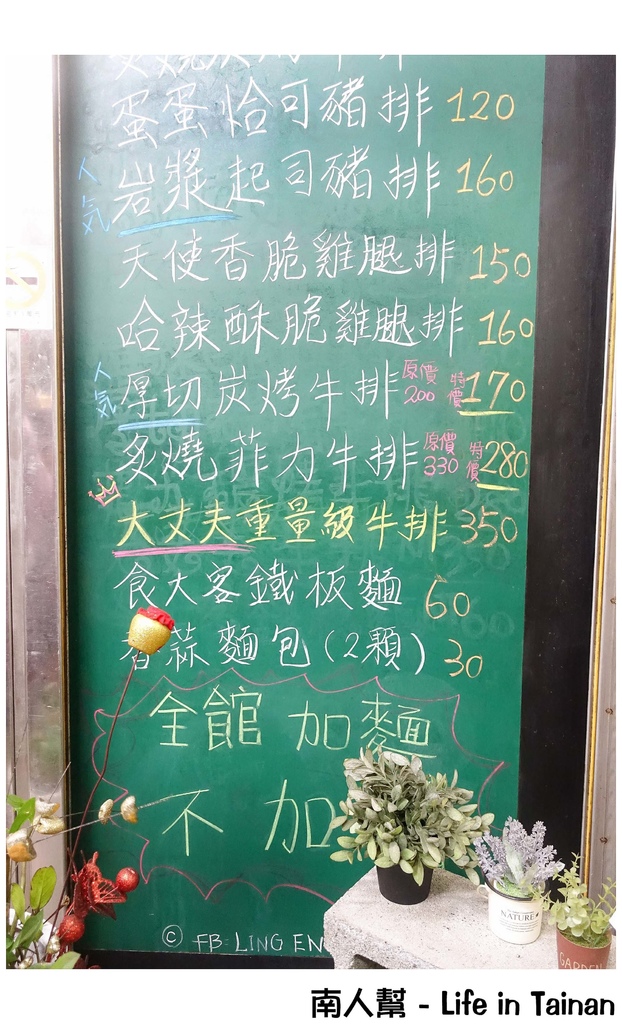 蛋蛋恰可豬排 120
人気 岩漿起司豬排 160
天使香脆雞腿排 150
哈辣酥脆雞腿排 160
人気 厚切炭烤牛排 原價200 特價170
炙燒菲力牛排 原價330 特價280
大丈夫重量級牛排 350
食大客鐵板麵 60
香蒜麵包(2顆) 30
全館加麵
不加
© FB: LING EN
NATURE
GARDEN
南人幫 - Life in Tainan